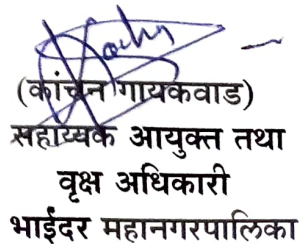 (कांचन गायकवाड)
सहाय्यक आयुक्त तथा
वृक्ष अधिकारी
भाईंदर महानगरपालिका